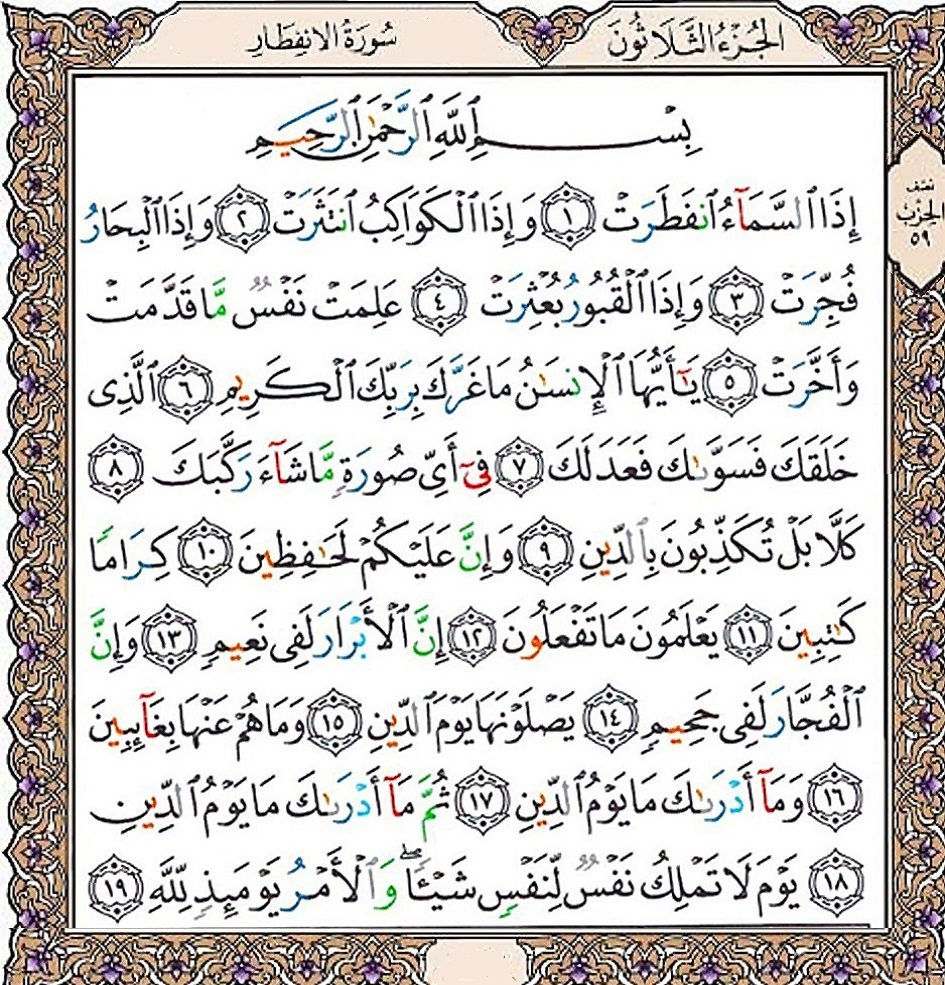 الجُزْءُ الثَّلَاثُونَ
سُورَةُ الانفِطَارِ
نصف
الحِزْب
٥٩
بِسْمِ ٱللَّهِ ٱلرَّحْمَٰنِ ٱلرَّحِيمِ
إِذَا ٱلسَّمَآءُ ٱنفَطَرَتْ ١ وَإِذَا ٱلْكَوَاكِبُ ٱنتَثَرَتْ ٢ وَإِذَا ٱلْبِحَارُ
فُجِّرَتْ ٣ وَإِذَا ٱلْقُبُورُ بُعْثِرَتْ ٤ عَلِمَتْ نَفْسٌ مَّا قَدَّمَتْ
وَأَخَّرَتْ ٥ يَٰٓأَيُّهَا ٱلْإِنسَٰنُ مَا غَرَّكَ بِرَبِّكَ ٱلْكَرِيمِ ٦ ٱلَّذِى
خَلَقَكَ فَسَوَّىٰكَ فَعَدَلَكَ ٧ فِىٓ أَىِّ صُورَةٍ مَّا شَآءَ رَكَّبَكَ ٨
كَلَّا بَلْ تُكَذِّبُونَ بِٱلدِّينِ ٩ وَإِنَّ عَلَيْكُمْ لَحَٰفِظِينَ ١٠ كِرَامًا
كَٰتِبِينَ ١١ يَعْلَمُونَ مَا تَفْعَلُونَ ١٢ إِنَّ ٱلْأَبْرَارَ لَفِى نَعِيمٍ ١٣ وَإِنَّ
ٱلْفُجَّارَ لَفِى جَحِيمٍ ١٤ يَصْلَوْنَهَا يَوْمَ ٱلدِّينِ ١٥ وَمَا هُمْ عَنْهَا بِغَآئِبِينَ
١٦ وَمَآ أَدْرَىٰكَ مَا يَوْمُ ٱلدِّينِ ١٧ ثُمَّ مَآ أَدْرَىٰكَ مَا يَوْمُ ٱلدِّينِ
١٨ يَوْمَ لَا تَمْلِكُ نَفْسٌ لِّنَفْسٍ شَيْـًٔا ۖ وَٱلْأَمْرُ يَوْمَئِذٍ لِّلَّهِ ١٩